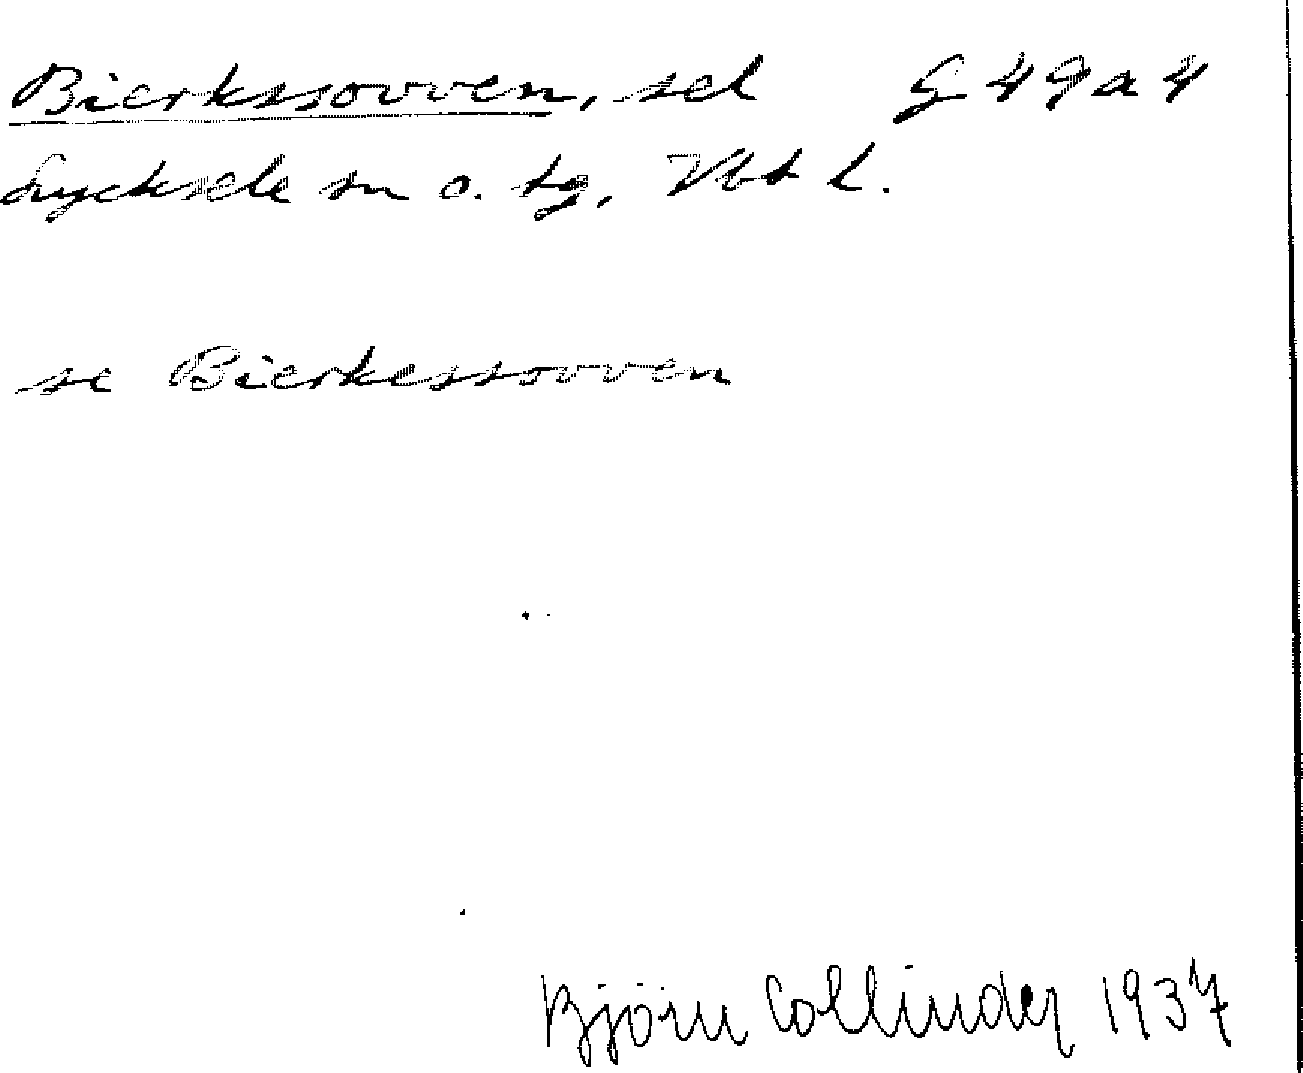 Bierkssovven, sel G 49 a 4
Lycksele sn o. tg, Vbt l.
se Bierkessovven
Björn Collinder 1937